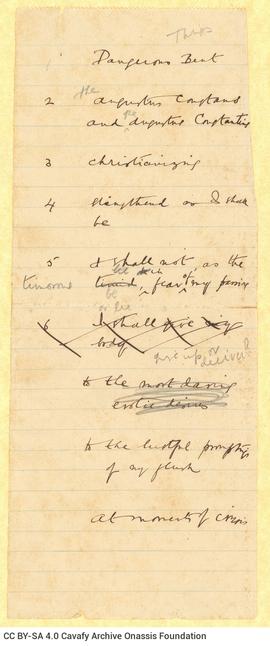 This
1 Dangerous Bent
the
2 augustus Constans
and the augustus Constantius
3 christianizing
4 strengthened as I shall
be
5 I shall not, as the
timorous timid, fear of my passions
6 I shall give my
body
give up or deliver?
to the most daring
erotic desires
to the lustful promptings
of my flesh
At moments of crisis
CC BY-SA 4.0 Cavafy Archive Onassis Foundation